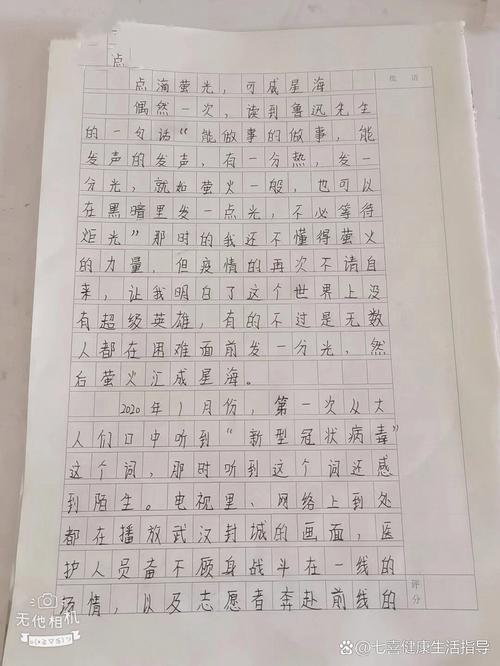 点
点滴萤光，可成星海
批语
偶然一次，读到鲁迅先生
的一句话“能做事的做事，能
发声的发声，有一分热，发一
分光，就如萤火一般，也可以
在黑暗里发一点光，不必等待
炬光”那时的我还不懂得萤火
的力量，但疫情的再次不请自
来，让我明白了这个世界上没
有超级英雄，有的不过是无数
人都在困难面前发一分光，然
后萤火汇成星海。
2020年1月份，第一次从大
人们口中听到“新型冠状病毒”
这个词，那时听到这个词还感
到陌生。电视里、网络上到处
都在播放武汉封城的画面，医
护人员奋不顾身战斗在一线的
评分
场情，以及志愿者奔赴前线的
无他相机
@七喜健康生活指导